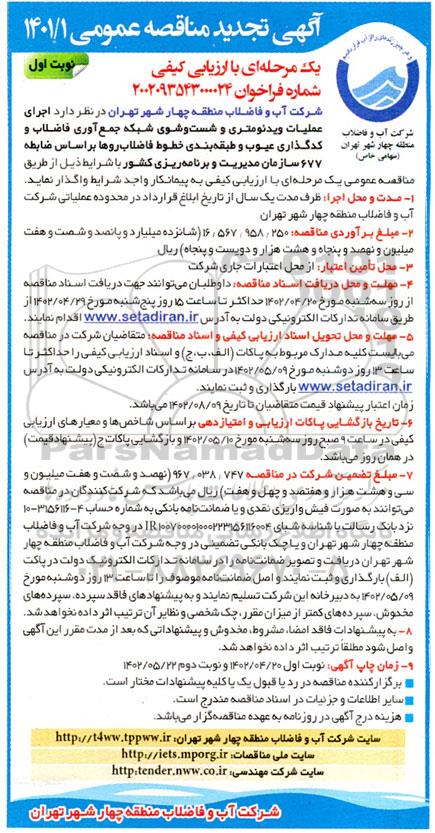 آگهی تجدید مناقصه عمومی ۱۴۰۱/۱
نوبت اول
یک مرحله‌ای با ارزیابی کیفی
شماره فراخوان ۲۰۰۲۰۹۳۵۴۳۰۰۰۰۲۴
شرکت آب و فاضلاب
منطقه چهار شهر تهران
(سهامی خاص)
شرکت آب و فاضلاب منطقه چهار شهر تهران در نظر دارد اجرای
عملیات ویدئومتری و شست‌وشوی شبکه جمع‌آوری فاضلاب و
کدگذاری عیوب و طبقه‌بندی خطوط فاضلاب‌روها بر اساس ضابطه
۶۷۷ سازمان مدیریت و برنامه‌ریزی کشور با شرایط ذیل از طریق
مناقصه عمومی یک مرحله‌ای با ارزیابی کیفی به پیمانکار واجد شرایط واگذار نماید.
۱- مدت و محل اجرا: ظرف مدت یک سال از تاریخ ابلاغ قرارداد در محدوده عملیاتی شرکت
آب و فاضلاب منطقه چهار شهر تهران
۲- مبلغ برآوردی مناقصه: ۱۶,۵۶۷,۹۵۸,۲۵۰ (شانزده میلیارد و پانصد و شصت و هفت
میلیون و نهصد و پنجاه و هشت هزار و دویست و پنجاه) ریال
۳- محل تأمین اعتبار: از محل اعتبارات جاری شرکت
۴- مهلت و محل دریافت اسناد مناقصه: داوطلبان می‌توانند جهت دریافت اسناد مناقصه
از روز سه‌شنبه مورخ ۱۴۰۲/۰۴/۲۰ حداکثر تا ساعت ۱۵ روز پنج‌شنبه مورخ ۱۴۰۲/۰۴/۲۹ از
طریق سامانه تدارکات الکترونیکی دولت به آدرس www.setadiran.ir اقدام نمایند.
۵- مهلت و محل تحویل اسناد ارزیابی کیفی و اسناد مناقصه: متقاضیان شرکت در مناقصه
می‌بایست کلیه مدارک مربوط به پاکات (الف، ب، ج) و اسناد ارزیابی کیفی را حداکثر تا
ساعت ۱۳ روز دوشنبه مورخ ۱۴۰۲/۰۵/۰۹ در سامانه تدارکات الکترونیکی دولت به آدرس
www.setadiran.ir بارگذاری و ثبت نمایند.
زمان اعتبار پیشنهاد قیمت متقاضیان تا تاریخ ۱۴۰۲/۰۸/۰۹ می‌باشد.
۶- تاریخ بازگشایی پاکات ارزیابی و امتیازدهی بر اساس شاخص‌ها و معیارهای ارزیابی
کیفی در ساعت ۹ صبح روز سه‌شنبه مورخ ۱۴۰۲/۰۵/۱۰ و بازگشایی پاکات ج (پیشنهاد قیمت)
در همان روز می‌باشد.
۷- مبلغ تضمین شرکت در مناقصه ۹۶۷,۰۳۸,۷۴۷ (نهصد و شصت و هفت میلیون و
سی و هشت هزار و هفتصد و چهل و هفت) ریال می‌باشد که شرکت‌کنندگان در مناقصه
می‌توانند به صورت فیش واریزی نقدی و یا ضمانت‌نامه بانکی به شماره حساب ۴-۳۱۵۶۱۱۶-۱۰
نزد بانک رسالت با شناسه شبای در وجه شرکت آب و فاضلاب
منطقه چهار شهر تهران و یا چک بانکی تضمینی در وجه شرکت آب و فاضلاب منطقه چهار
شهر تهران دریافت و تصویر ضمانت‌نامه را در سامانه تدارکات الکترونیک دولت در پاکت
(الف) بارگذاری و ثبت نمایند و اصل ضمانت‌نامه موصوف را تا ساعت ۱۳ روز دوشنبه مورخ
۱۴۰۲/۰۵/۰۹ به دبیرخانه این شرکت تسلیم نمایند و به پیشنهادهای فاقد سپرده، سپرده‌های
مخدوش، سپرده‌های کمتر از میزان مقرر، چک شخصی و نظایر آن ترتیب اثر داده نخواهد شد.
۸- به پیشنهادات فاقد امضا، مشروط، مخدوش و پیشنهاداتی که بعد از مدت مقرر این آگهی
واصل شود مطلقاً ترتیب اثر داده نخواهد شد.
۹- زمان چاپ آگهی: نوبت اول ۱۴۰۲/۰۴/۲۰ و نوبت دوم ۱۴۰۲/۰۵/۲۲
برگزارکننده مناقصه در رد یا قبول یک یا کلیه پیشنهادات مختار است.
سایر اطلاعات و جزئیات در اسناد مناقصه مندرج است.
هزینه درج آگهی در روزنامه به عهده مناقصه‌گزار می‌باشد.
سایت شرکت آب و فاضلاب منطقه چهار شهر تهران: http://t4ww.tppww.ir
سایت ملی مناقصات: http://iets.mporg.ir
سایت شرکت مهندسی: http:tender.nww.co.ir
شرکت آب و فاضلاب منطقه چهار شهر تهران